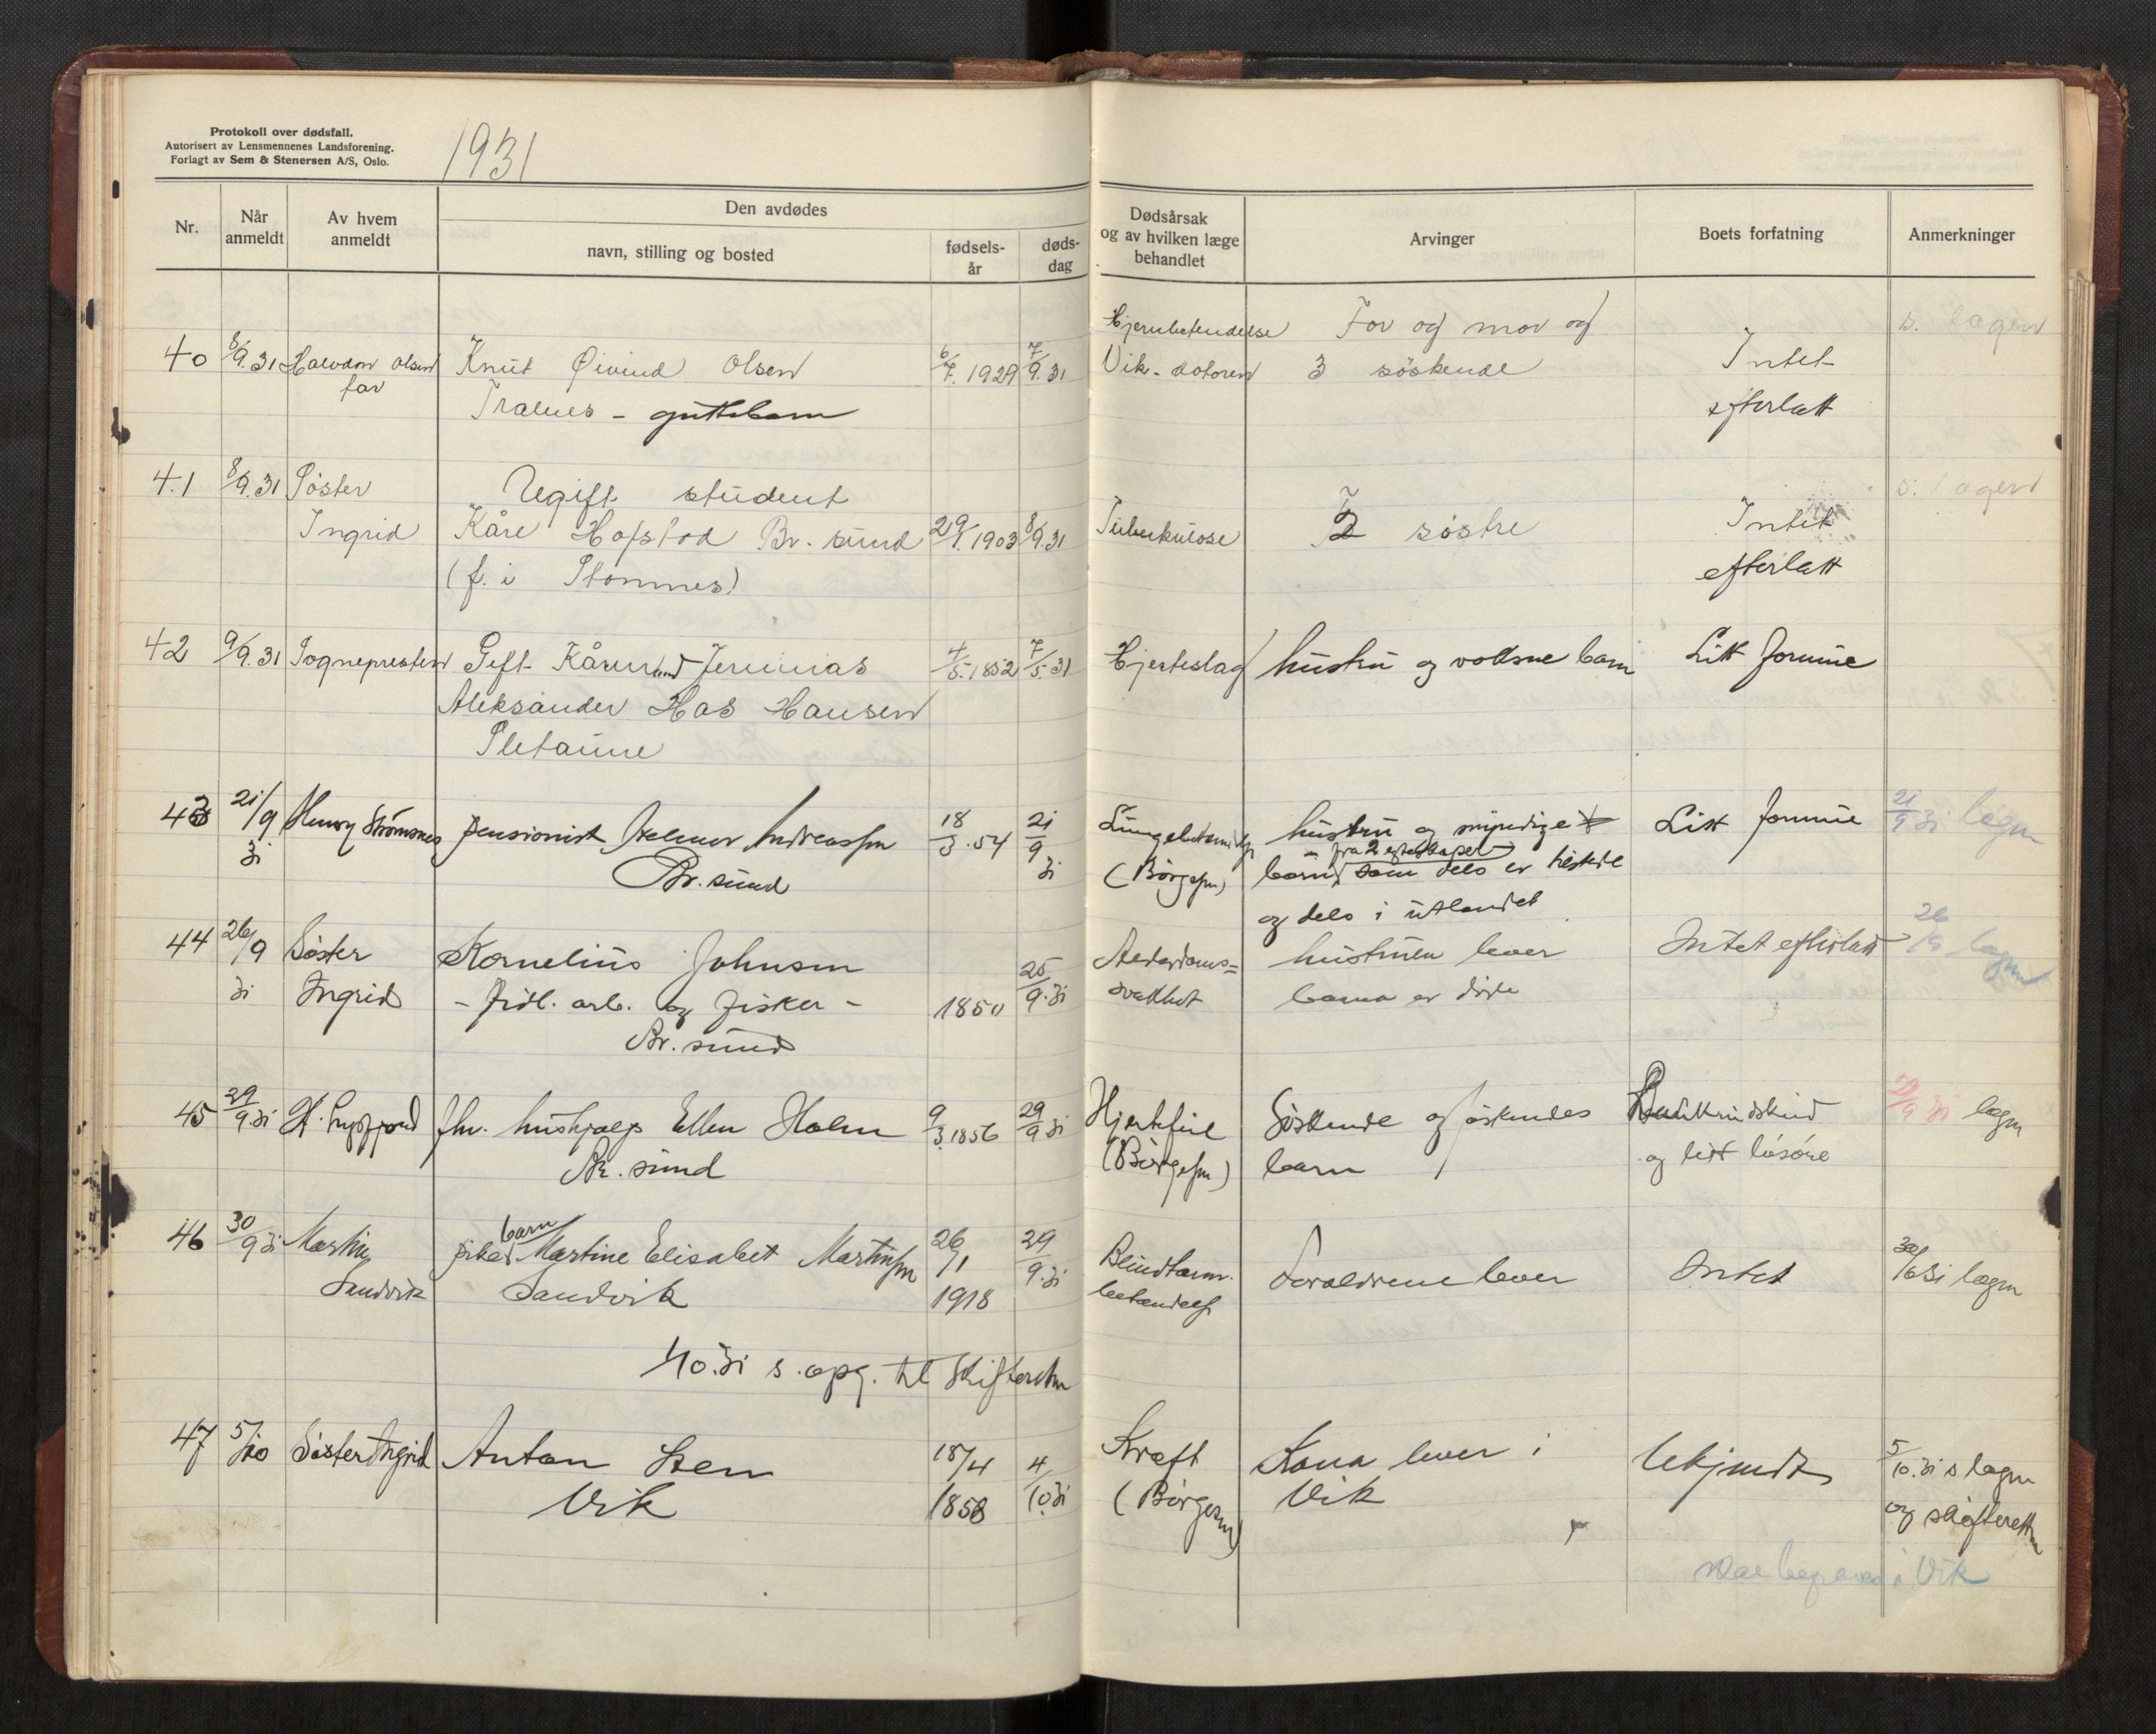 Protokoll over dødsfall.
Autorisert av Lensmennenes Landsforening.
Forlagt av Sem & Stenersen A/S, Oslo.
1931
Nr.
Når anmeldt
Av hvem anmeldt
Den avdødes
navn, stilling og bosted
fødsels-år
døds-dag
Dødsårsak og av hvilken læge behandlet
Arvinger
Boets forfatning
Anmerkninger
Hjernbetendelse Far og mor og s. lagen
40 8/9.31 Halvdan Olsen Knut Øivind Olsen 6/7. 1929 7/9.31 Vik-doktoren 3 søskende Intet
far Trælnes - guttebarn efterlatt
41 8/9.31 Søster Ugift student s. lagen
Ingrid Kåre Hofstad Br. sund 29/1. 1903 8/9.31 Tuberkulose 2 søstre Intet
(f. i Stømnes) efterlatt
42 9/9.31 Sognepresten Gift Jeremias 4/5. 1852 7/5.31 Hjerteslag hustru og voksne barn Litt formue
Aleksander Has Hansen
43 21/9 31 Henry Strømsnes pensionist Andreassen 18/3.54 21/9 31 hustru og myndige Litt formue 21/9 31 lagen
Br. sund (Børgesen) barn fra 2 egteskaper som dels er tilstede
og dels i utlandet
44 26/9 31 Søster Kornelius Johnsen Alderdoms= hustruen lever Intet efterlatt 26/9 lagen
Ingrid - fidl. arb. og fisker - 1850 25/9.31 svakhet barna er døde
Br. sund
45 29/9.31 frk. hushjelp Ellen Holm 9/3.1856 29/9 31 Hjertefeil Søskende og søskendes
Br. sund (Børgesen) barn og litt løsøre 29/9 31 lagen
46 30/9 31 Martin pikebarn Martine Elisabet Martinsen 26/1 29/9.31 Blindtarm- Foreldrene lever Intet lagen
Sandvik Sandvik 1918 betendelse
1/10.31 s. opg. til Skifteretten
47 5/10 Søster Ingrid Anton Steen 18/4 4 Kreft Kona lever i Ukjendt 5/10.31 s lagen
Vik 1858 10.31 (Børgesen) Vik og skifteretten
begraves i Vik